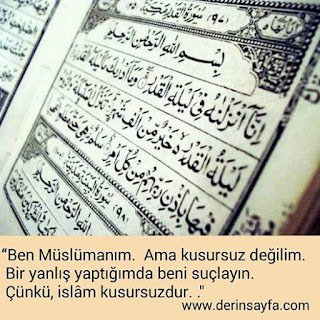 سورة القدر
بسم الله الرحمن الرحيم
انا انزلنه فى ليلة القدر وما ادرىك ما ليلة القدر
ليلة القدر خير من الف شهر تنزل
فيها باذن ربهم من كل امر سلم هى
بسم الله الرحمن الرحيم
“Ben Müslümanım. Ama kusursuz değilim.
Bir yanlış yaptığımda beni suçlayın.
Çünkü, islâm kusursuzdur. ."
www.derinsayfa.com